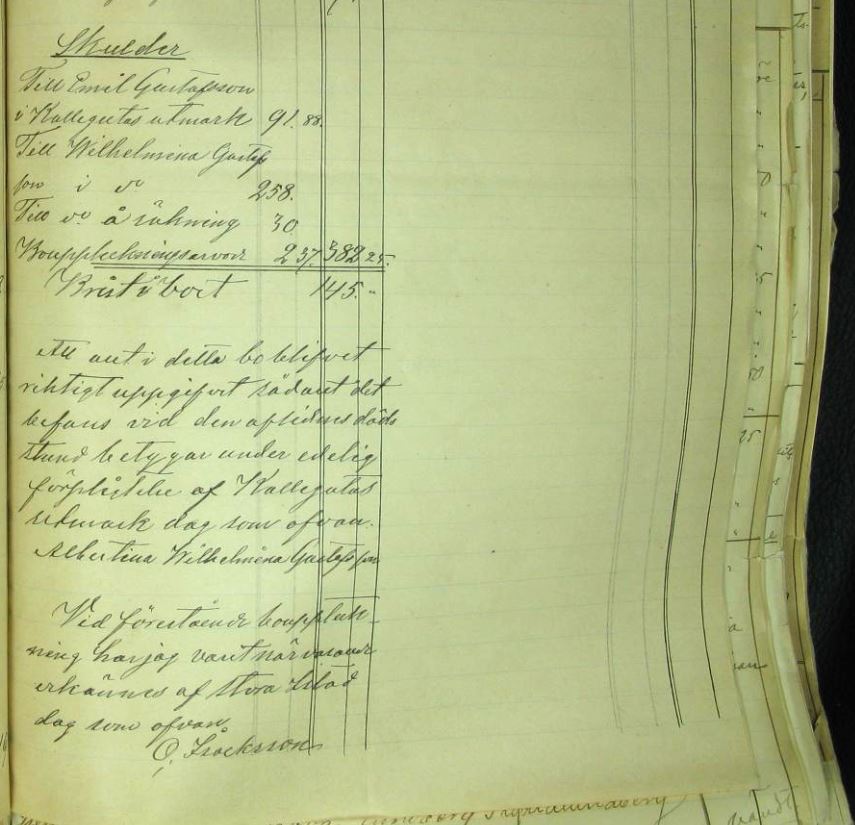 Skulder
Till Emil Gustafsson
i Kallegutas utmark 91. 88.
Till Wilhelmina Gustaf
son i do 258.
Till do å räkning 30
Bouppteckningsarvode 2 37. 382 25.
Brist i boet 145. "
Att allt i detta bo blifvit
riktigt uppgifvet sådant det
befans vid den aflidnes döds
stund betygar under edelig
förpligtelse af Kallegutas
utmark dag som ofvan.
Albertina Wilhelmina Gustafsson
Vid förestående bouppteck-
ning har jag varit närvarande
erkännes af Stora Istad
dag som ofvan
O, Isacksson
25